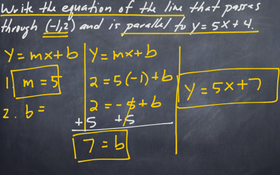 Write the equation of the line that passes
through (-1,2) and is parallel to y = 5x + 4.
y = mx + b
1. m = 5
2. b =
y = mx + b
2 = 5(-1) + b
2 = -5 + b
+5 +5
7 = b
y = 5x + 7